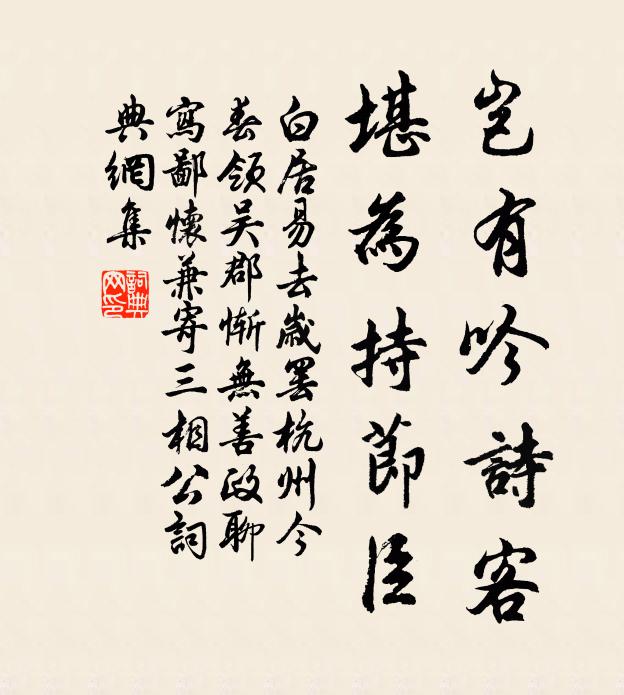 豈有吟詩客
堪為持節臣
白居易去歲罷杭州今
春領吳郡慚無善政聊
寫鄙懷兼寄三相公詞
典網集
詞典網印